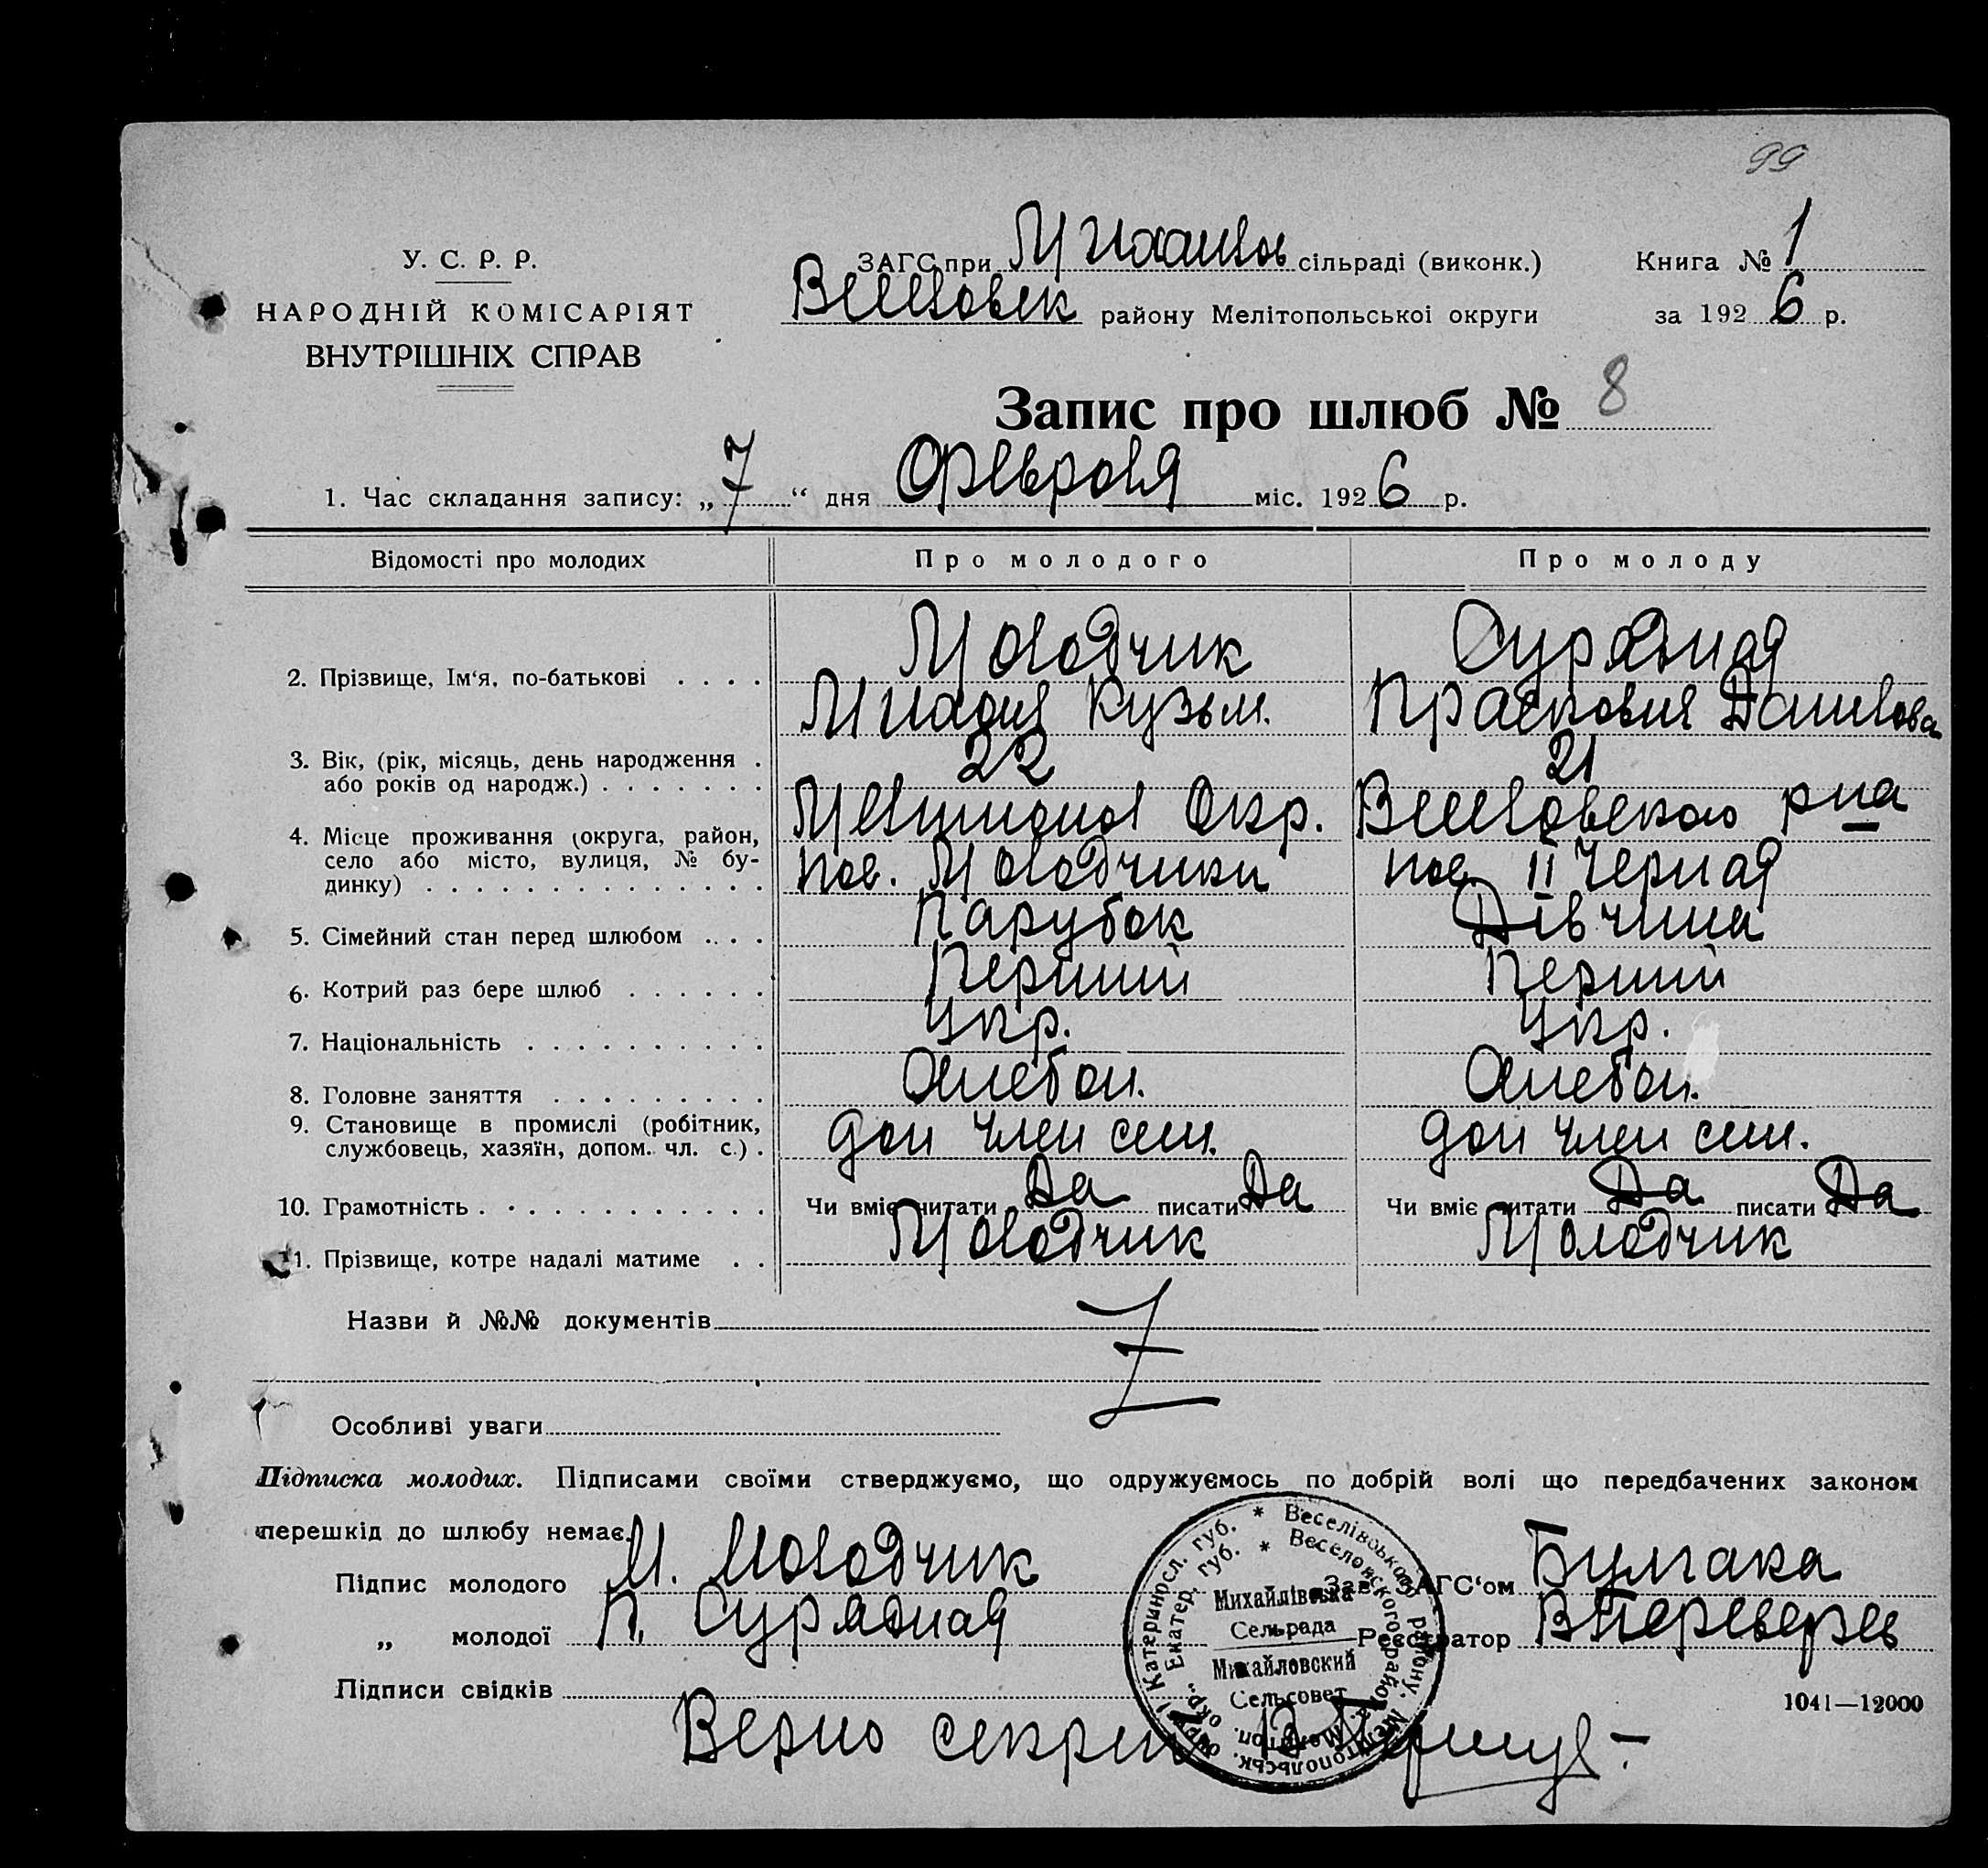 99
У. С. Р. Р.
НАРОДНІЙ КОМІСАРІЯТ
ВНУТРІШНІХ СПРАВ
ЗАГС при Михайлов сільраді (виконк.)
Веселовск району Мелітопольської округи
Книга № 1
за 1926 р.
Запис про шлюб № 8
1. Час складання запису: „7“ дня Февраля міс. 1926 р.
Відомості про молодих Про молодого Про молоду
2. Прізвище, Ім‘я, по-батькові . . . . Молодчик Сурядная
Кузьм. Прасковия Данилова
3. Вік, (рік, місяць, день народження . 22 21
або років од народж.) . . . . . . .
4. Місце проживання (округа, район, Мелитопол Окр. Веселовского р-на
село або місто, вулиця, № бу- пос. Молодчики пос II Черная
динку) . . . . . . . . . . . . . .
5. Сімейний стан перед шлюбом . . . . Парубок Дівчина
6. Котрий раз бере шлюб . . . . . . Перший Перший
7. Національність . . . . . . . . . . Укр. Укр.
8. Головне заняття . . . . . . . . . Хлебоп. Хлебоп.
9. Становище в промислі (робітник, доп член сем. доп член сем.
службовець, хазяїн, допом. чл. с.) .
10. Грамотність . . . . . . . . . . . . Чи вміє читати Да писати Да Чи вміє читати Да писати Да
11. Прізвище, котре надалі матиме . . Молодчик Молодчик
Назви й №№ документів
Особливі уваги
Підписка молодих. Підписами своїми стверджуємо, що одружуємось по добрій волі що передбачених законом
перешкід до шлюбу немає.
Підпис молодого М. Молодчик
Зав. ЗАГС‘ом Булгака
„ молодої П. Сурядная
Реєстратор В Переверзев
Підписи свідків
1041—12000
Верно секрет
* Веселівського району, Мелітопольськ. округи Катериносл. губ.
* Веселовского района, Мелитоп. окр., Екатер. губ.
Михайлівська
Сельрада
Михайловский
Сельсовет